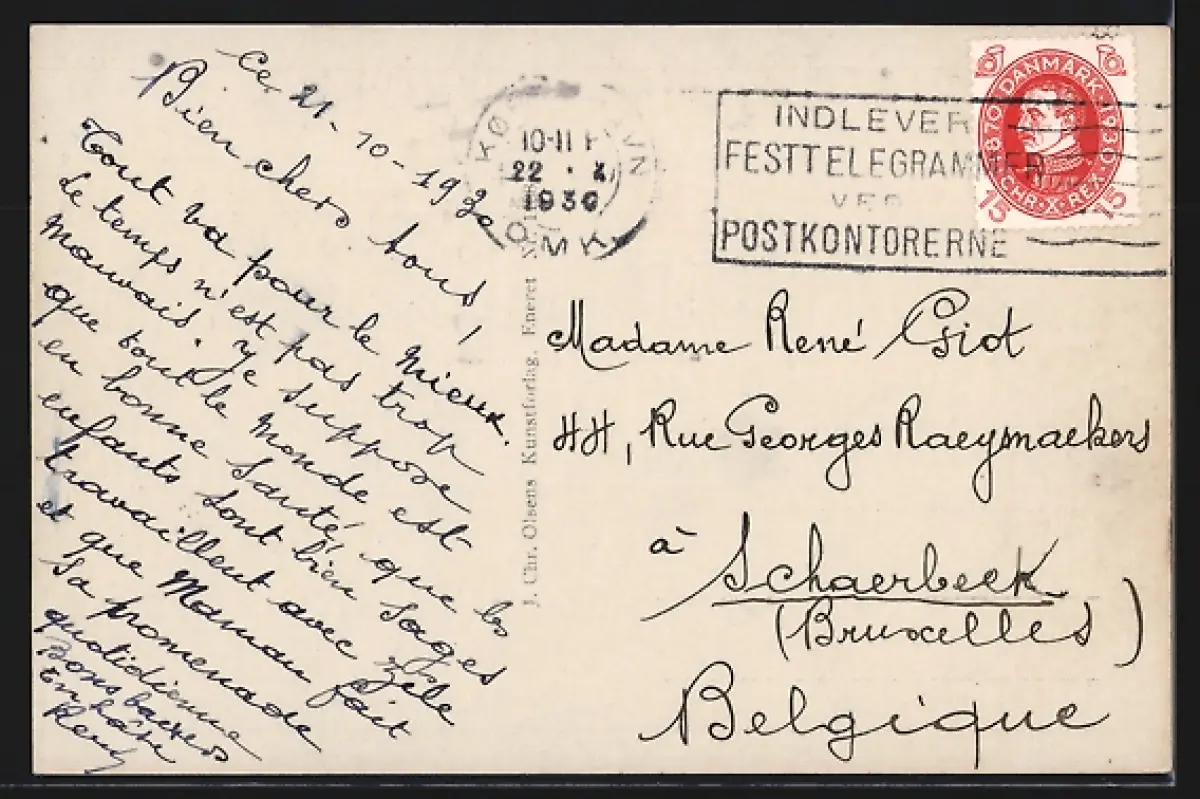 Ce, 21-10-1930
Bien chers tous,
Tout va pour le mieux.
Le temps n'est pas trop
mauvais. Je suppose
que tout le monde est
en bonne santé, que les
enfants sont bien sages
travaillent avec zèle
et que Maman fait
sa promenade
quotidienne
Bons baisers
En hâte
J. Chr. Olsens Kunstforlag. Eneret
KØ VN
10-11 F
22 . X.
1930
OMK
INDLEVER
FESTTELEGRAMMER
VED
POSTKONTORERNE
DANMARK
1870 1930
15 CHR·X·REX 15
Madame René Giot
44, Rue Georges Raeymaekers
à Schaerbeek
(Bruxelles)
Belgique